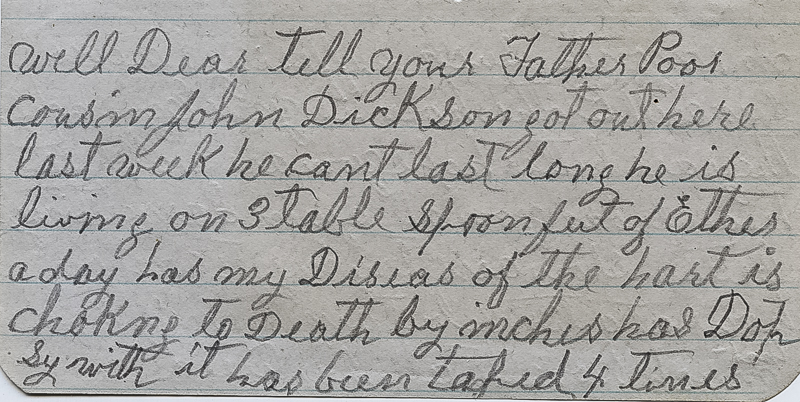 well Dear tell your Father Poor
cousin John Dickson got out here
last week he cant last long he is
living on 3 table spoonful of Ether
a day has my Diseas of the hart is
chokng to Death by inches has Dop
sy with it has been taped 4 times